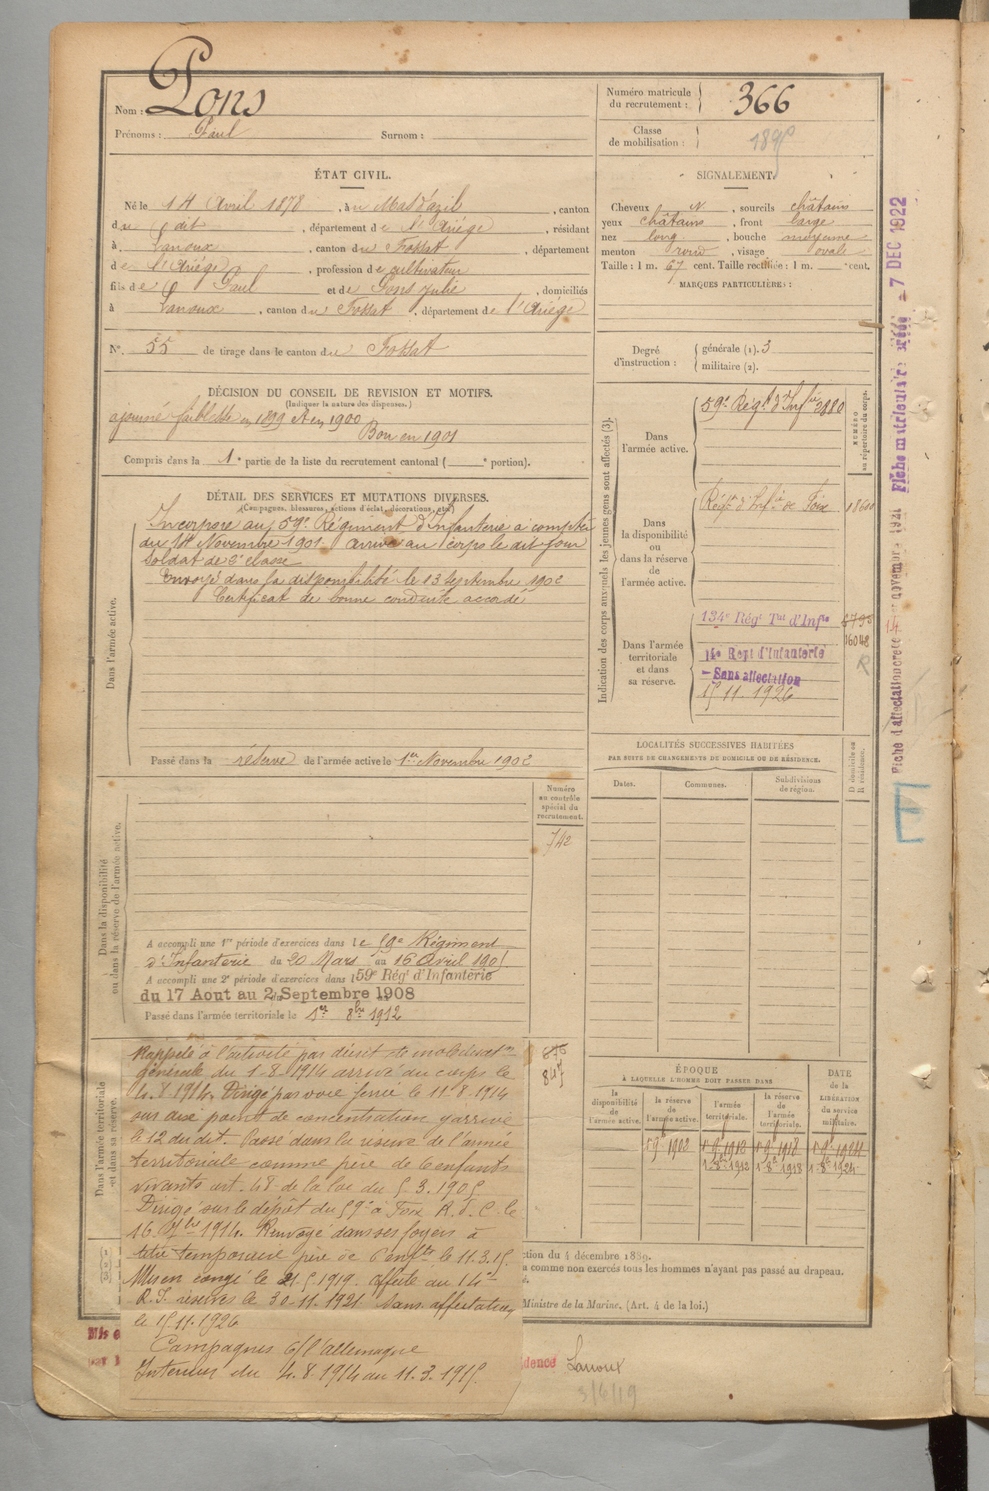 Nom : Pons
Prénoms : Paul Surnom :
Numéro matricule
du recrutement : 366
Classe
de mobilisation : 189
ÉTAT CIVIL.
Né le 14 Avril 1878, à u Mas d'azil, canton
du dit, département de l'Ariége, résidant
à Lanoux, canton du Fossat, département
de l'Ariége, profession de cultivateur
fils de Paul et de Pons Julie, domiciliés
à Lanoux, canton du Fossat, département de l'Ariége
N° 55 de tirage dans le canton du Fossat
SIGNALEMENT.
Cheveux N., sourcils châtains
yeux châtains, front large
nez long, bouche moyenne
menton rond, visage ovale
Taille : 1 m. 67 cent. Taille rectifiée : 1 m. cent.
MARQUES PARTICULIÈRES :
Degré
d'instruction :
générale (1). 3
militaire (2).
DÉCISION DU CONSEIL DE REVISION ET MOTIFS.
(Indiquer la nature des dispenses.)
ajourné faiblesse en 1899 et en 1900
Bon en 1901
Compris dans la 1e partie de la liste du recrutement cantonal ( e portion).
DÉTAIL DES SERVICES ET MUTATIONS DIVERSES.
(Campagnes, blessures, actions d'éclat, décorations, etc.)
Dans l'armée active.
Incorporé au 59e Régiment d'Infanterie a compter
du 14 Novembre 1901. arrivé au corps le dit jour
Soldat de 2e classe
Envoyé dans la disponibilité le 13 Septembre 1902
Certificat de bonne conduite accordé
Passé dans la réserve de l'armée active le 1er Novembre 1902
Indication des corps auxquels les jeunes gens sont affectés (3).
NUMÉRO
au répertoire du corps.
Dans
l'armée active.
59e Régt d'Infie 2880
Dans
la disponibilité
ou
dans la réserve
de
l'armée active.
Régt d'Infie de Foix 1860
Dans l'armée
territoriale
et dans
sa réserve.
134e Régt Tal d'Infie
16048
14e Regt d'Infanterie
Sans affectation
15 11. 1926
R
Fiche matriculaire créée - 7 DEC 1922
Fiche d'affectation créée 14 novembre 1921
LOCALITÉS SUCCESSIVES HABITÉES
PAR SUITE DE CHANGEMENTS DU DOMICILE OU DE RÉSIDENCE.
Dates.
Communes.
Subdivisions
de région.
D domicile ou
R résidence.
Dans la disponibilité
ou dans la réserve de l'armée active.
Numéro
au contrôle
spécial du
recrutement.
742
A accompli une 1re période d'exercices dans le 59e Régiment
d'Infanterie du 20 Mars au 16 Avril 190
A accompli une 2e période d'exercices dans l 59e Régt d'Infanterie
du 17 Aout au 2 Septembre 1908
Passé dans l'armée territoriale le 1er 8bre 1912
Dans l'armée territoriale
et dans sa réserve.
847
Rappelé à l'activité par décret de mobilisaton
générale du 1-8-1914 arrivé au corps le
4.8.1914. Dirigé par voie ferrée le 11-8-1914
sur dixe point de concentration y arrivé
le 12 du dit. Passé dans la réserve de l'armée
territoriale comme père de 6 enfants
vivants art. 48 de la loi du 5.3.1905
Dirigé sur le dépôt du 59e à Foix A.D.C. le
16 7bre 1914. Renvoyé dans ses foyers à
titre temporaire père de 6 enfts le 11.3.15.
Mis en congé le 21.5.1919. Affecté au 14e
R.I. réserves le 30-11.1921. Sans affectation
le 15.11.1926
Campagnes c/ l'allemagne
Interieur du 4.8.1914 au 11.3.1915.
ÉPOQUE
À LAQUELLE L'HOMME DOIT PASSER DANS
la
disponibilité
de
l'armée active.
la réserve
de
l'armée active.
l'armée
territoriale.
la réserve
de
l'armée
territoriale.
DATE
de la
LIBÉRATION
du service
militaire.
1-8bre 1912
1-8bre 1918
1-8bre 1924
ction du 4 décembre 1889.
a comme non exercés tous les hommes n'ayant pas passé au drapeau.
Ministre de la Marine. (Art. 4 de la loi.)
Mis e
dence Lanoux
3/6/19